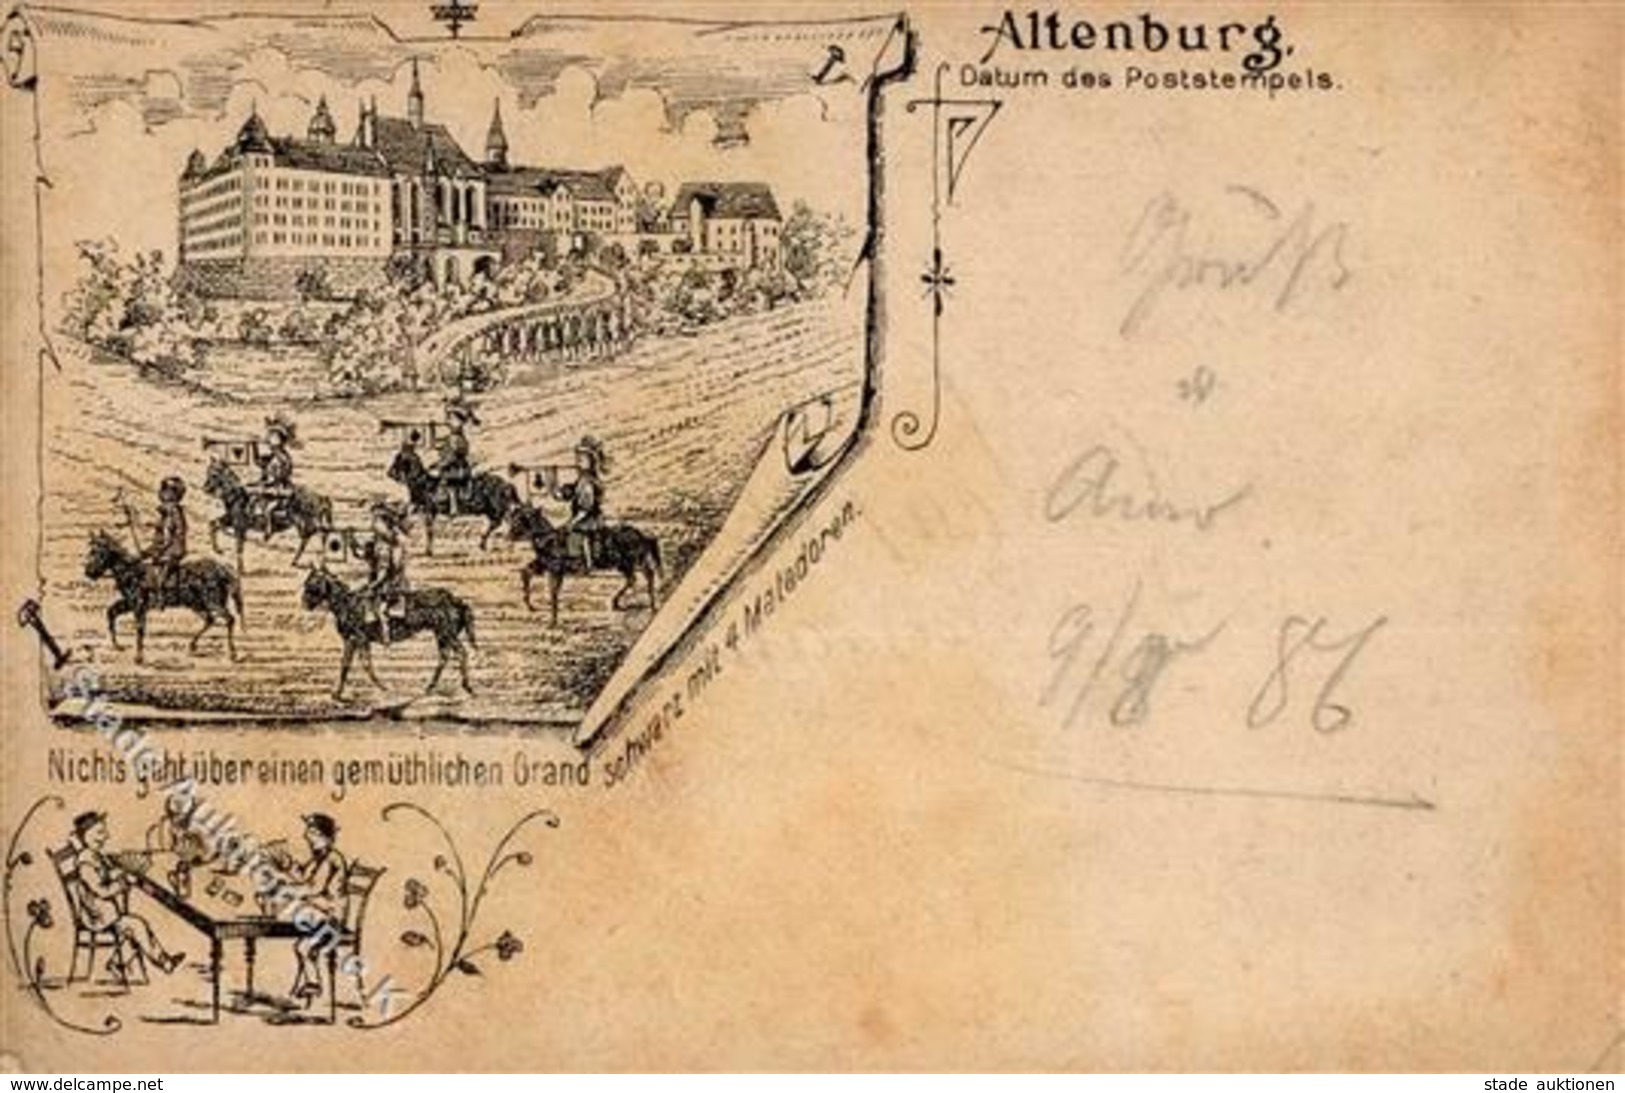 Altenburg.
Datum des Poststempels.
Gruß
86
Nichts geht über einen gemüthlichen Grand schwarz mit 4 Matadoren.
Stade Auktionen
www.delcampe.net
stade auktionen